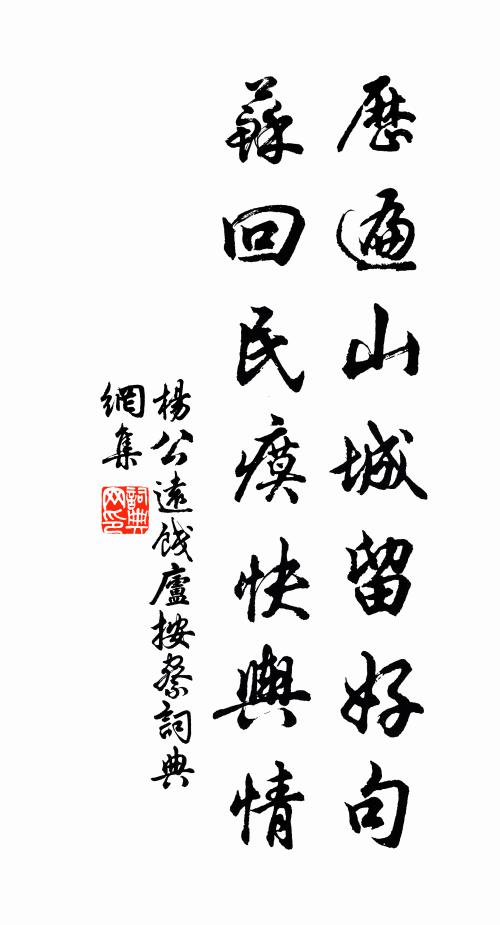 歷遍山城留好句
蘇回民瘼快輿情
楊公遠餞盧按察詞典
網集
詞典
網印